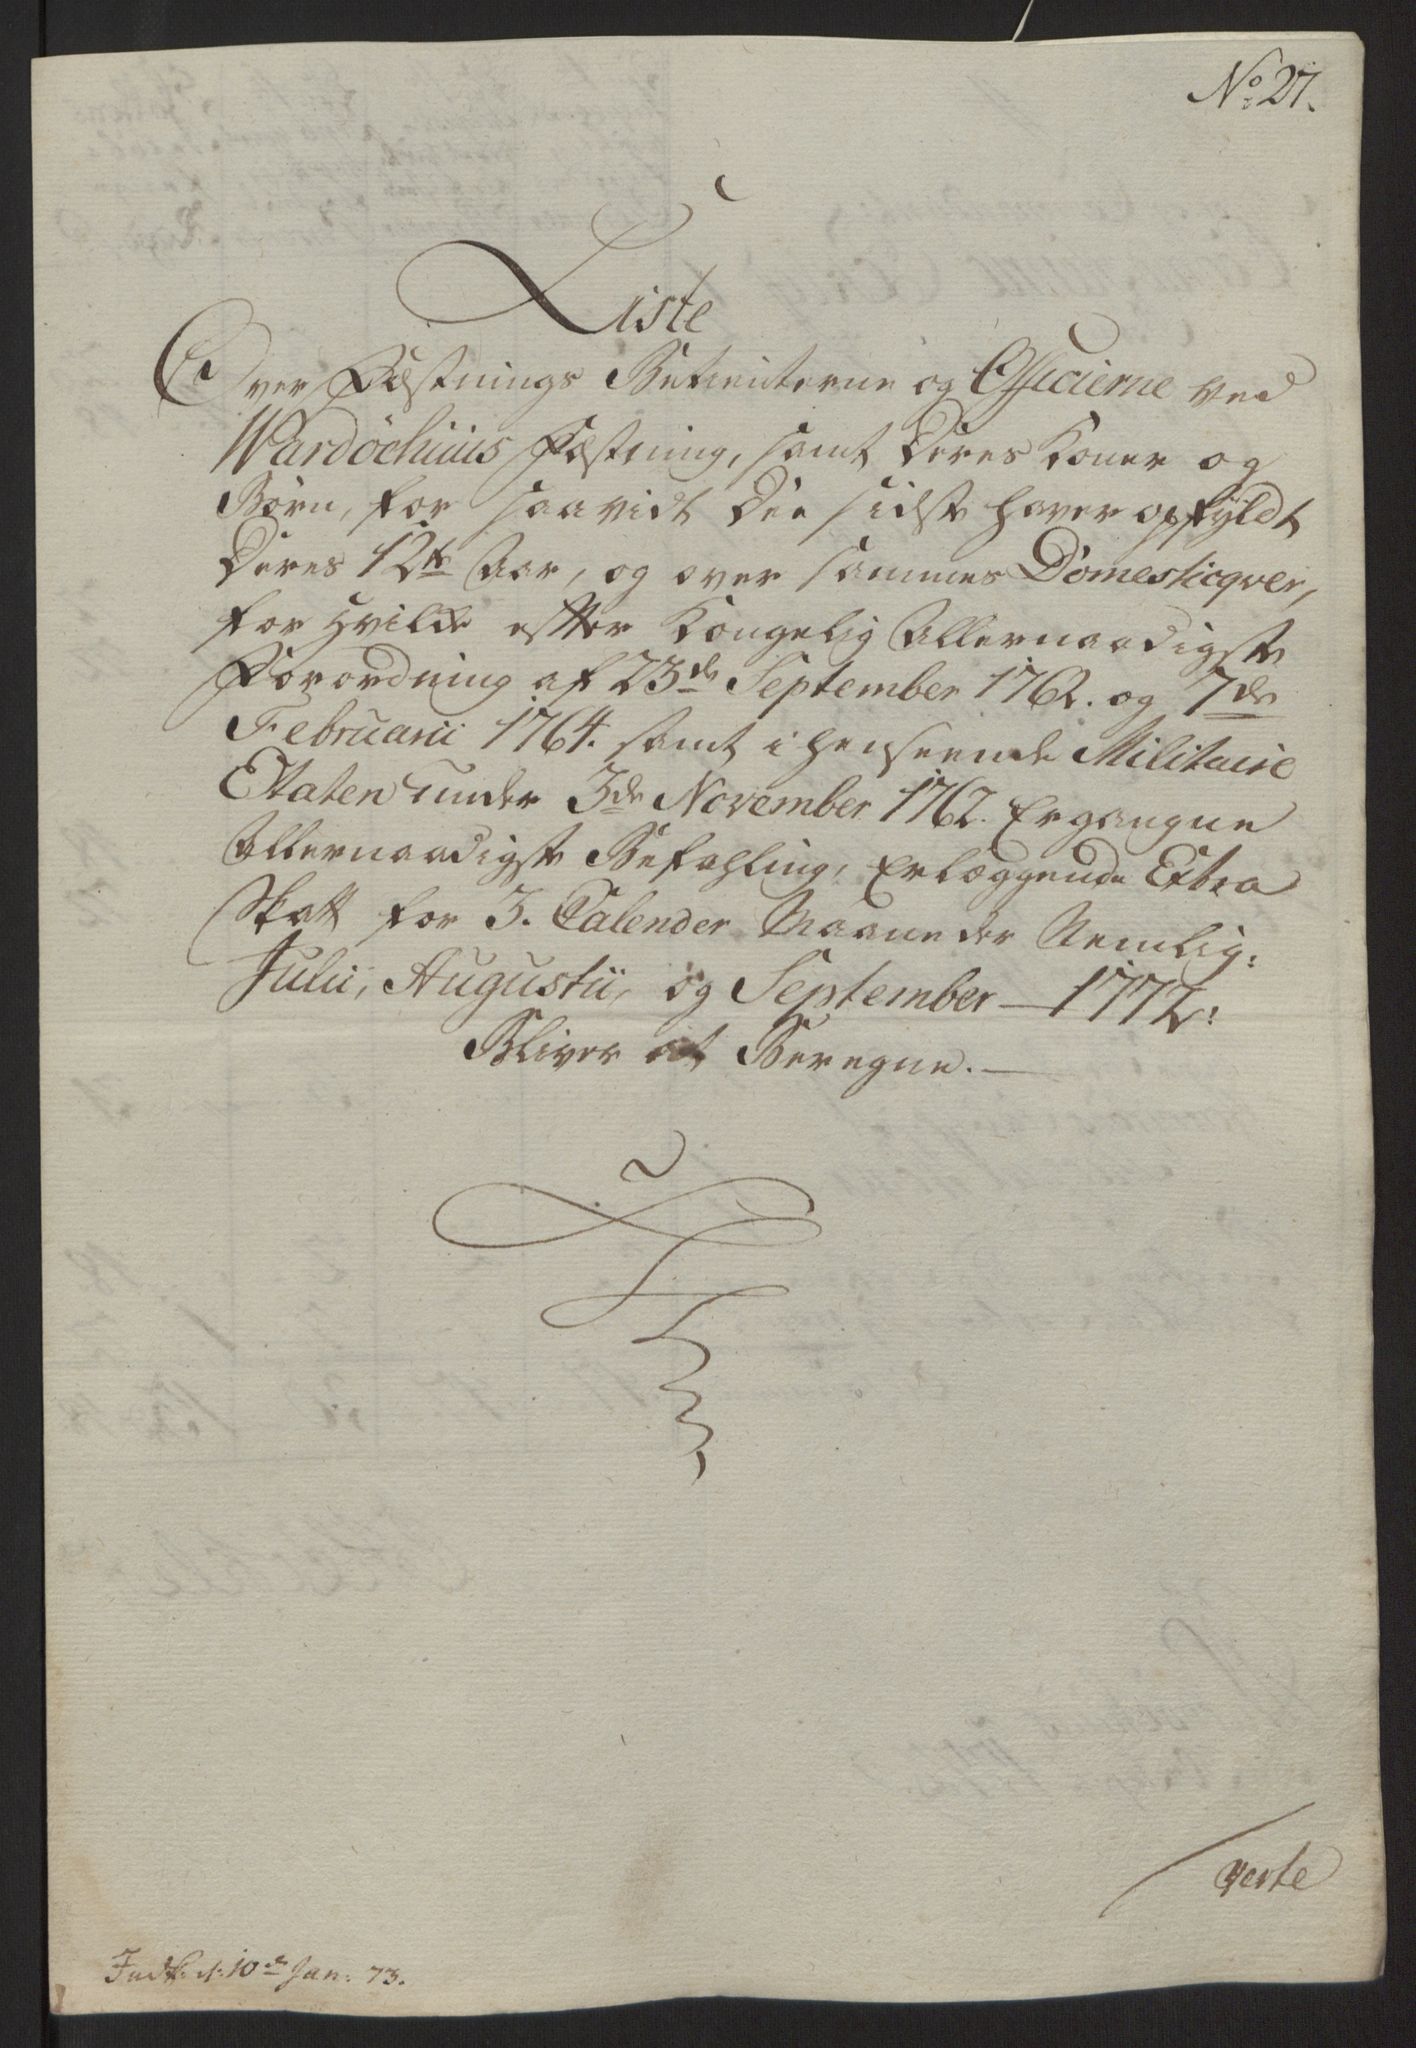 No: 27.
Liste
Over Fæstnings Betienterne og Officierne ved
Wardöehuus Fæstning, samt deres Koner og
Börn, for saavidt dee sidste haver opfyldt
deres 12te Aar, og over sammes Domesticqver,
for hvilke efter Kongelig Allernaadigste
Forordning af 23de September 1762. og 7de
Februarii 1764. samt i henseende Militaire
Etaten under 3de November 1762. Ergangne
Allernaadigste Befahling, Erlæggende Extra
Skatt for 3. Calender Maaneder Nemlig:
Julii, Augustii, og September — 1772:
Bliver at Beregne. —
verte
Indk: d: 10de Jan: 73.